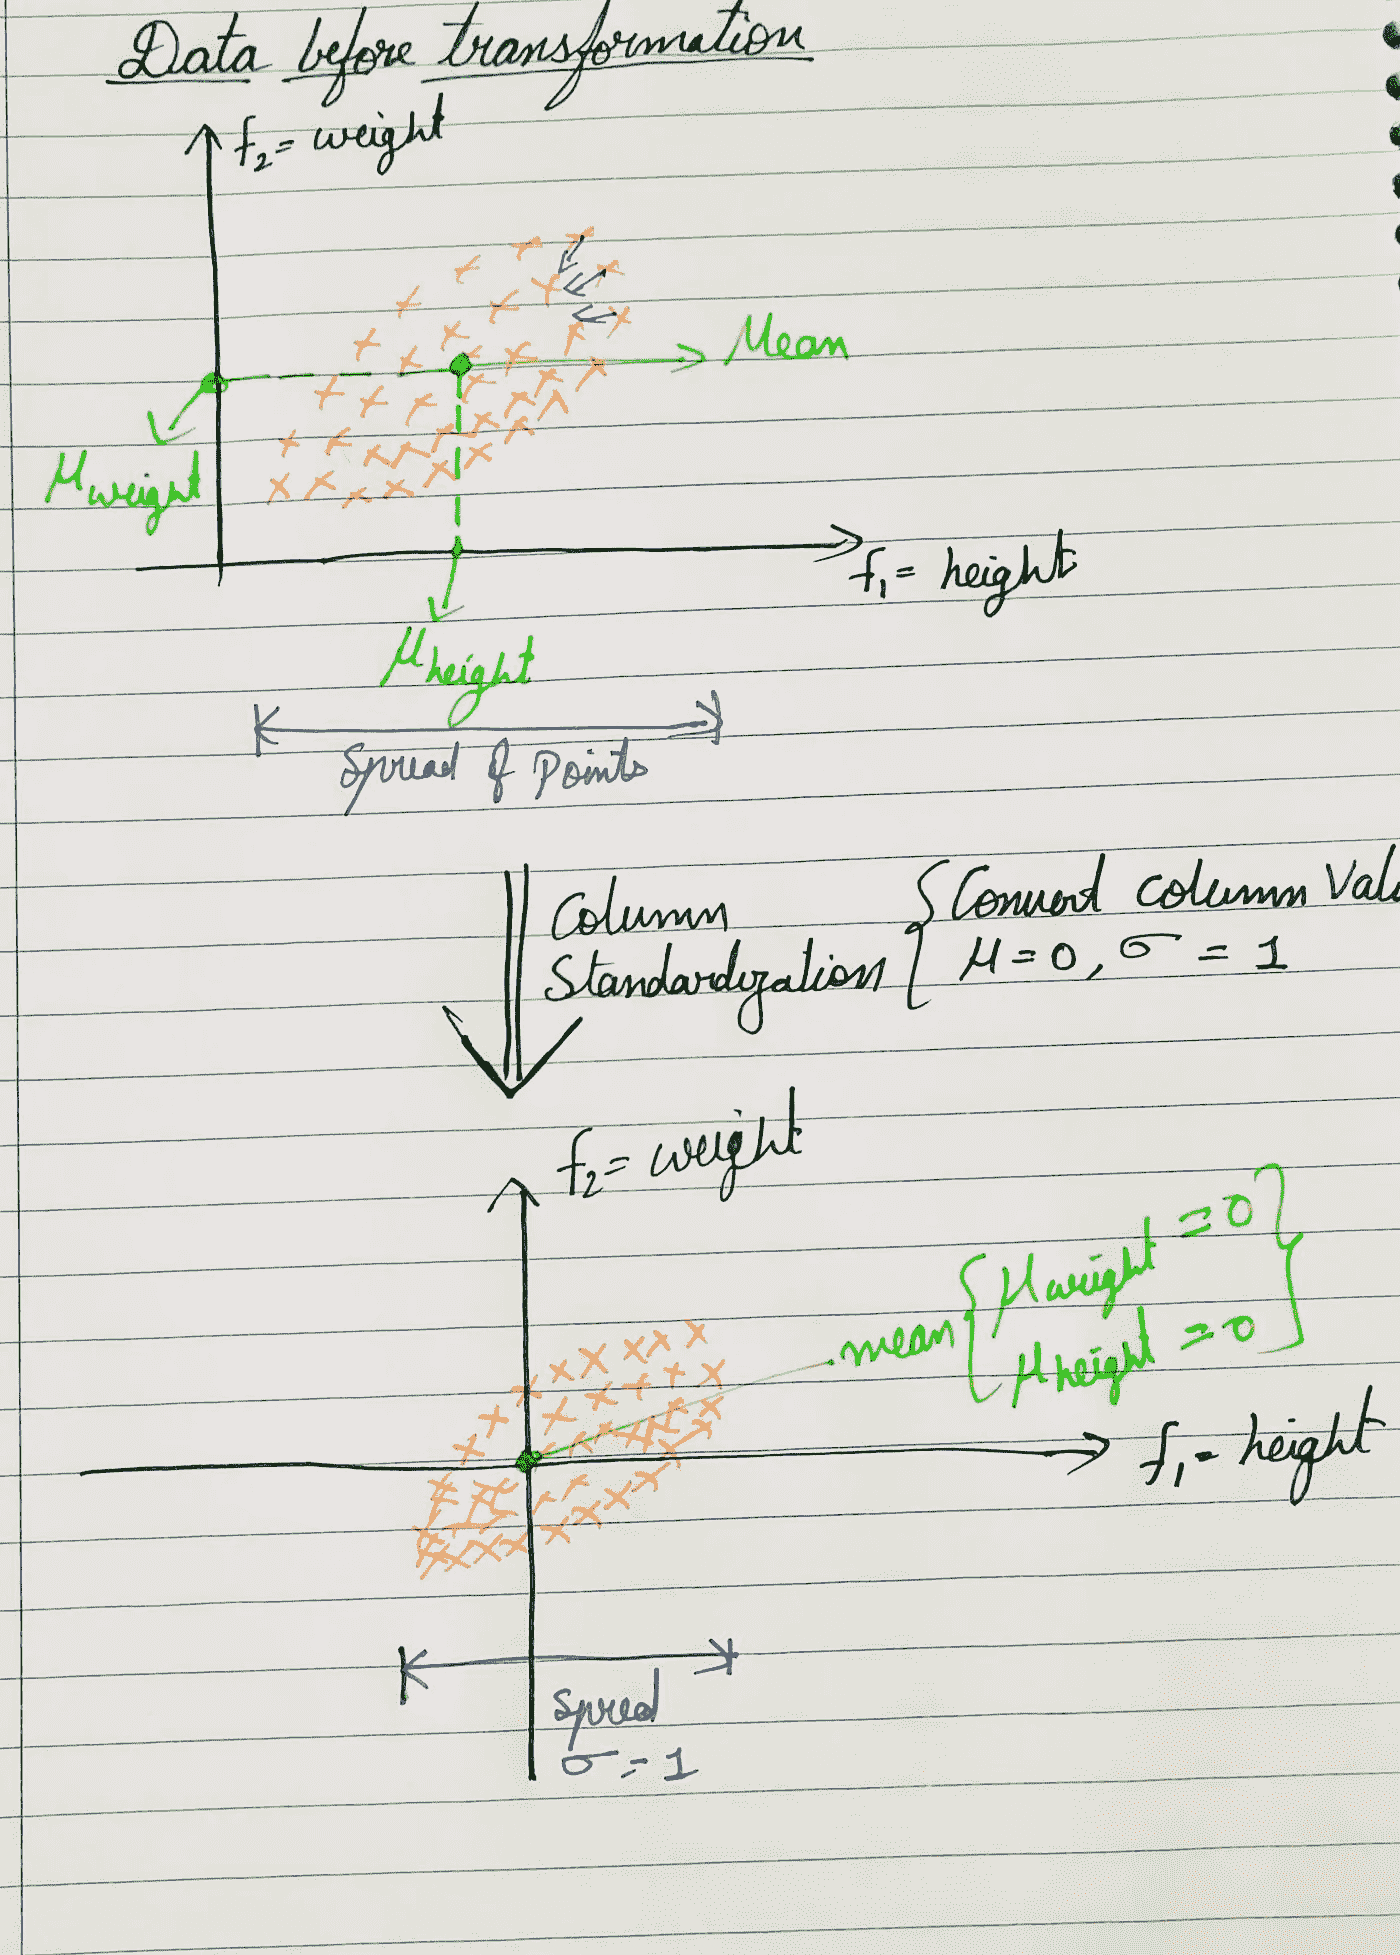 Data before transformation
f₂ = weight
Mean
μ weight
f₁ = height
μ height
Spread of Points
Column
Standardization
{ Convert column Val
μ = 0, σ = 1
f₂ = weight
μ weight = 0
.mean
μ height = 0
f₁ = height
Spred
σ = 1